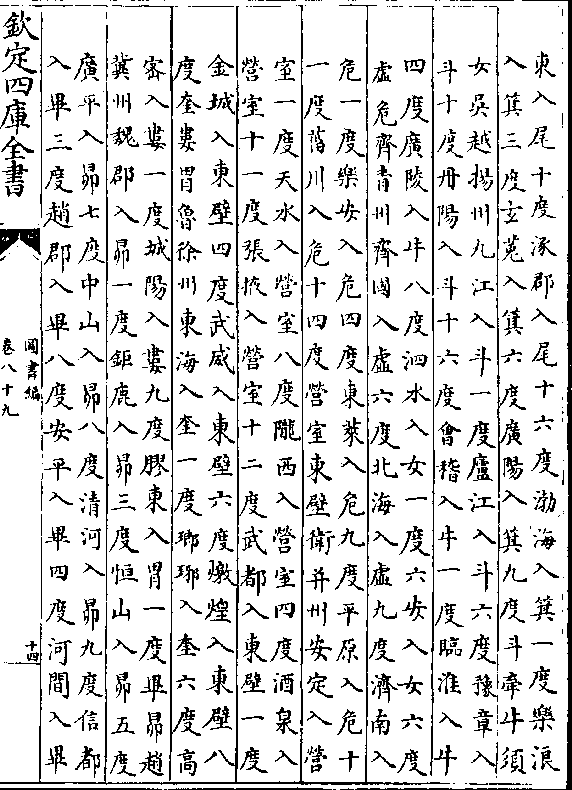 東入尾十度涿郡入尾十六度渤海入箕一度樂浪
入箕三度玄菟入箕六度廣陽入箕九度斗牽牛須
女吳越揚州九江入斗一度廬江入斗六度豫章入
斗十度丹陽入斗十六度會稽入牛一度臨淮入牛
四度廣陵入牛八度泗水入女一度六安入女六度
虛危齊青州齊國入虛六度北海入虛九度濟南入
危一度樂安入危四度東萊入危九度平原入危十
一度菑川入危十四度營室東壁衛并州安定入營
室一度天水入營室八度隴西入營室四度酒泉入
營室十一度張掖入營室十二度武都入東壁一度
金城入東壁四度武威入東壁六度燉煌入東壁八
度奎婁胃魯徐州東海入奎一度瑯琊入奎六度高
密入婁一度城陽入婁九度膠東入胃一度畢昴趙
冀州魏郡入昴一度鉅鹿入昴三度恒山入昴五度
廣平入昴七度中山入昴八度清河入昴九度信都
入畢三度趙郡入畢八度安平入畢四度河間入畢
欽定四庫全書
圖書編
卷八十九
十四